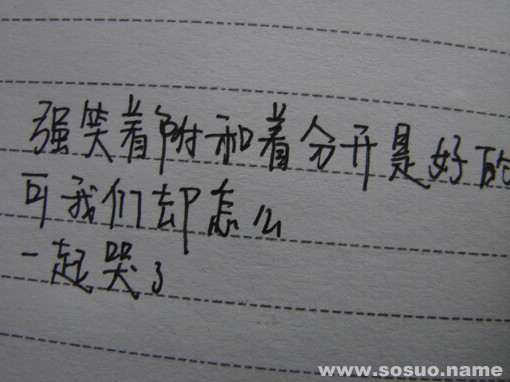 强笑着附和着分开是好的
可我们却怎么
一起哭了
www.sosuo.name